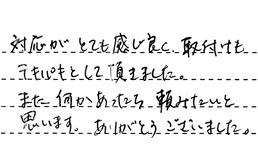 対応がとても感じ良く、取付けも
テキパキとして頂きました。
また何かあったら頼みたいと
思います。ありがとうございました。